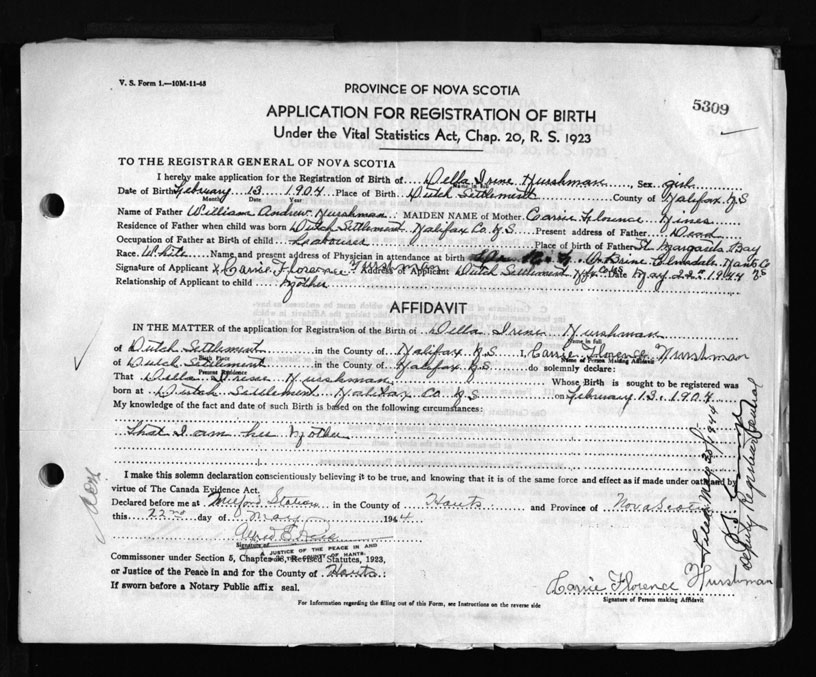 V. S. Form 1.—10M-11-43
PROVINCE OF NOVA SCOTIA
5309
APPLICATION FOR REGISTRATION OF BIRTH
Under the Vital Statistics Act, Chap. 20, R. S. 1923
TO THE REGISTRAR GENERAL OF NOVA SCOTIA
I hereby make application for the Registration of Birth of Della Irene Hurshman Sex girl
Name in full
Date of Birth February 13 1904 Place of Birth Dutch Settlement County of Halifax N.S
Month Date Year
Name of Father William Andrew Hurshman MAIDEN NAME of Mother Carrie Florence Hines
Residence of Father when child was born Dutch Settlement Halifax Co. N.S Present address of Father Dead
Occupation of Father at Birth of child Labourer Place of Birth of Father St Margarets Bay
Race White Name and present address of Physician in attendance at birth Elmsdale, Hants Co
Signature of Applicant x Carrie Florence Hurshman Address of Applicant Dutch Settlement Date May 22nd 1944
Relationship of Applicant to child Mother
AFFIDAVIT
IN THE MATTER of the application for Registration of the Birth of Della Irene Hurshman
Name in full
of Dutch Settlement in the County of Halifax N.S I, Carrie Florence Hurshman
Birth Place Name of Person Making Affidavit
of Dutch Settlement in the County of Halifax N.S do solemnly declare:
Present Residence
That Della Irene Hurshman Whose Birth is sought to be registered was
born at Dutch Settlement Halifax Co N.S on February 13. 1904
My knowledge of the fact and date of such Birth is based on the following circumstances:
that I am her Mother
I make this solemn declaration conscientiously believing it to be true, and knowing that it is of the same force and effect as if made under oath and by
virtue of The Canada Evidence Act.
Declared before me at Milford Station in the County of Hants and Province of Nova Scotia
this 22nd day of May 1944
Signature of
A JUSTICE OF THE PEACE IN AND
FOR THE COUNTY OF HANTS.
Commissioner under Section 5, Chapter 38, Revised Statutes, 1923,
or Justice of the Peace in and for the County of Hants.
If sworn before a Notary Public affix seal.
Carrie Florence Hurshman
Signature of Person making Affidavit
For Information regarding the filling out of this Form, see Instructions on the reverse side
Filed May 30/1944
Deputy Registrar General